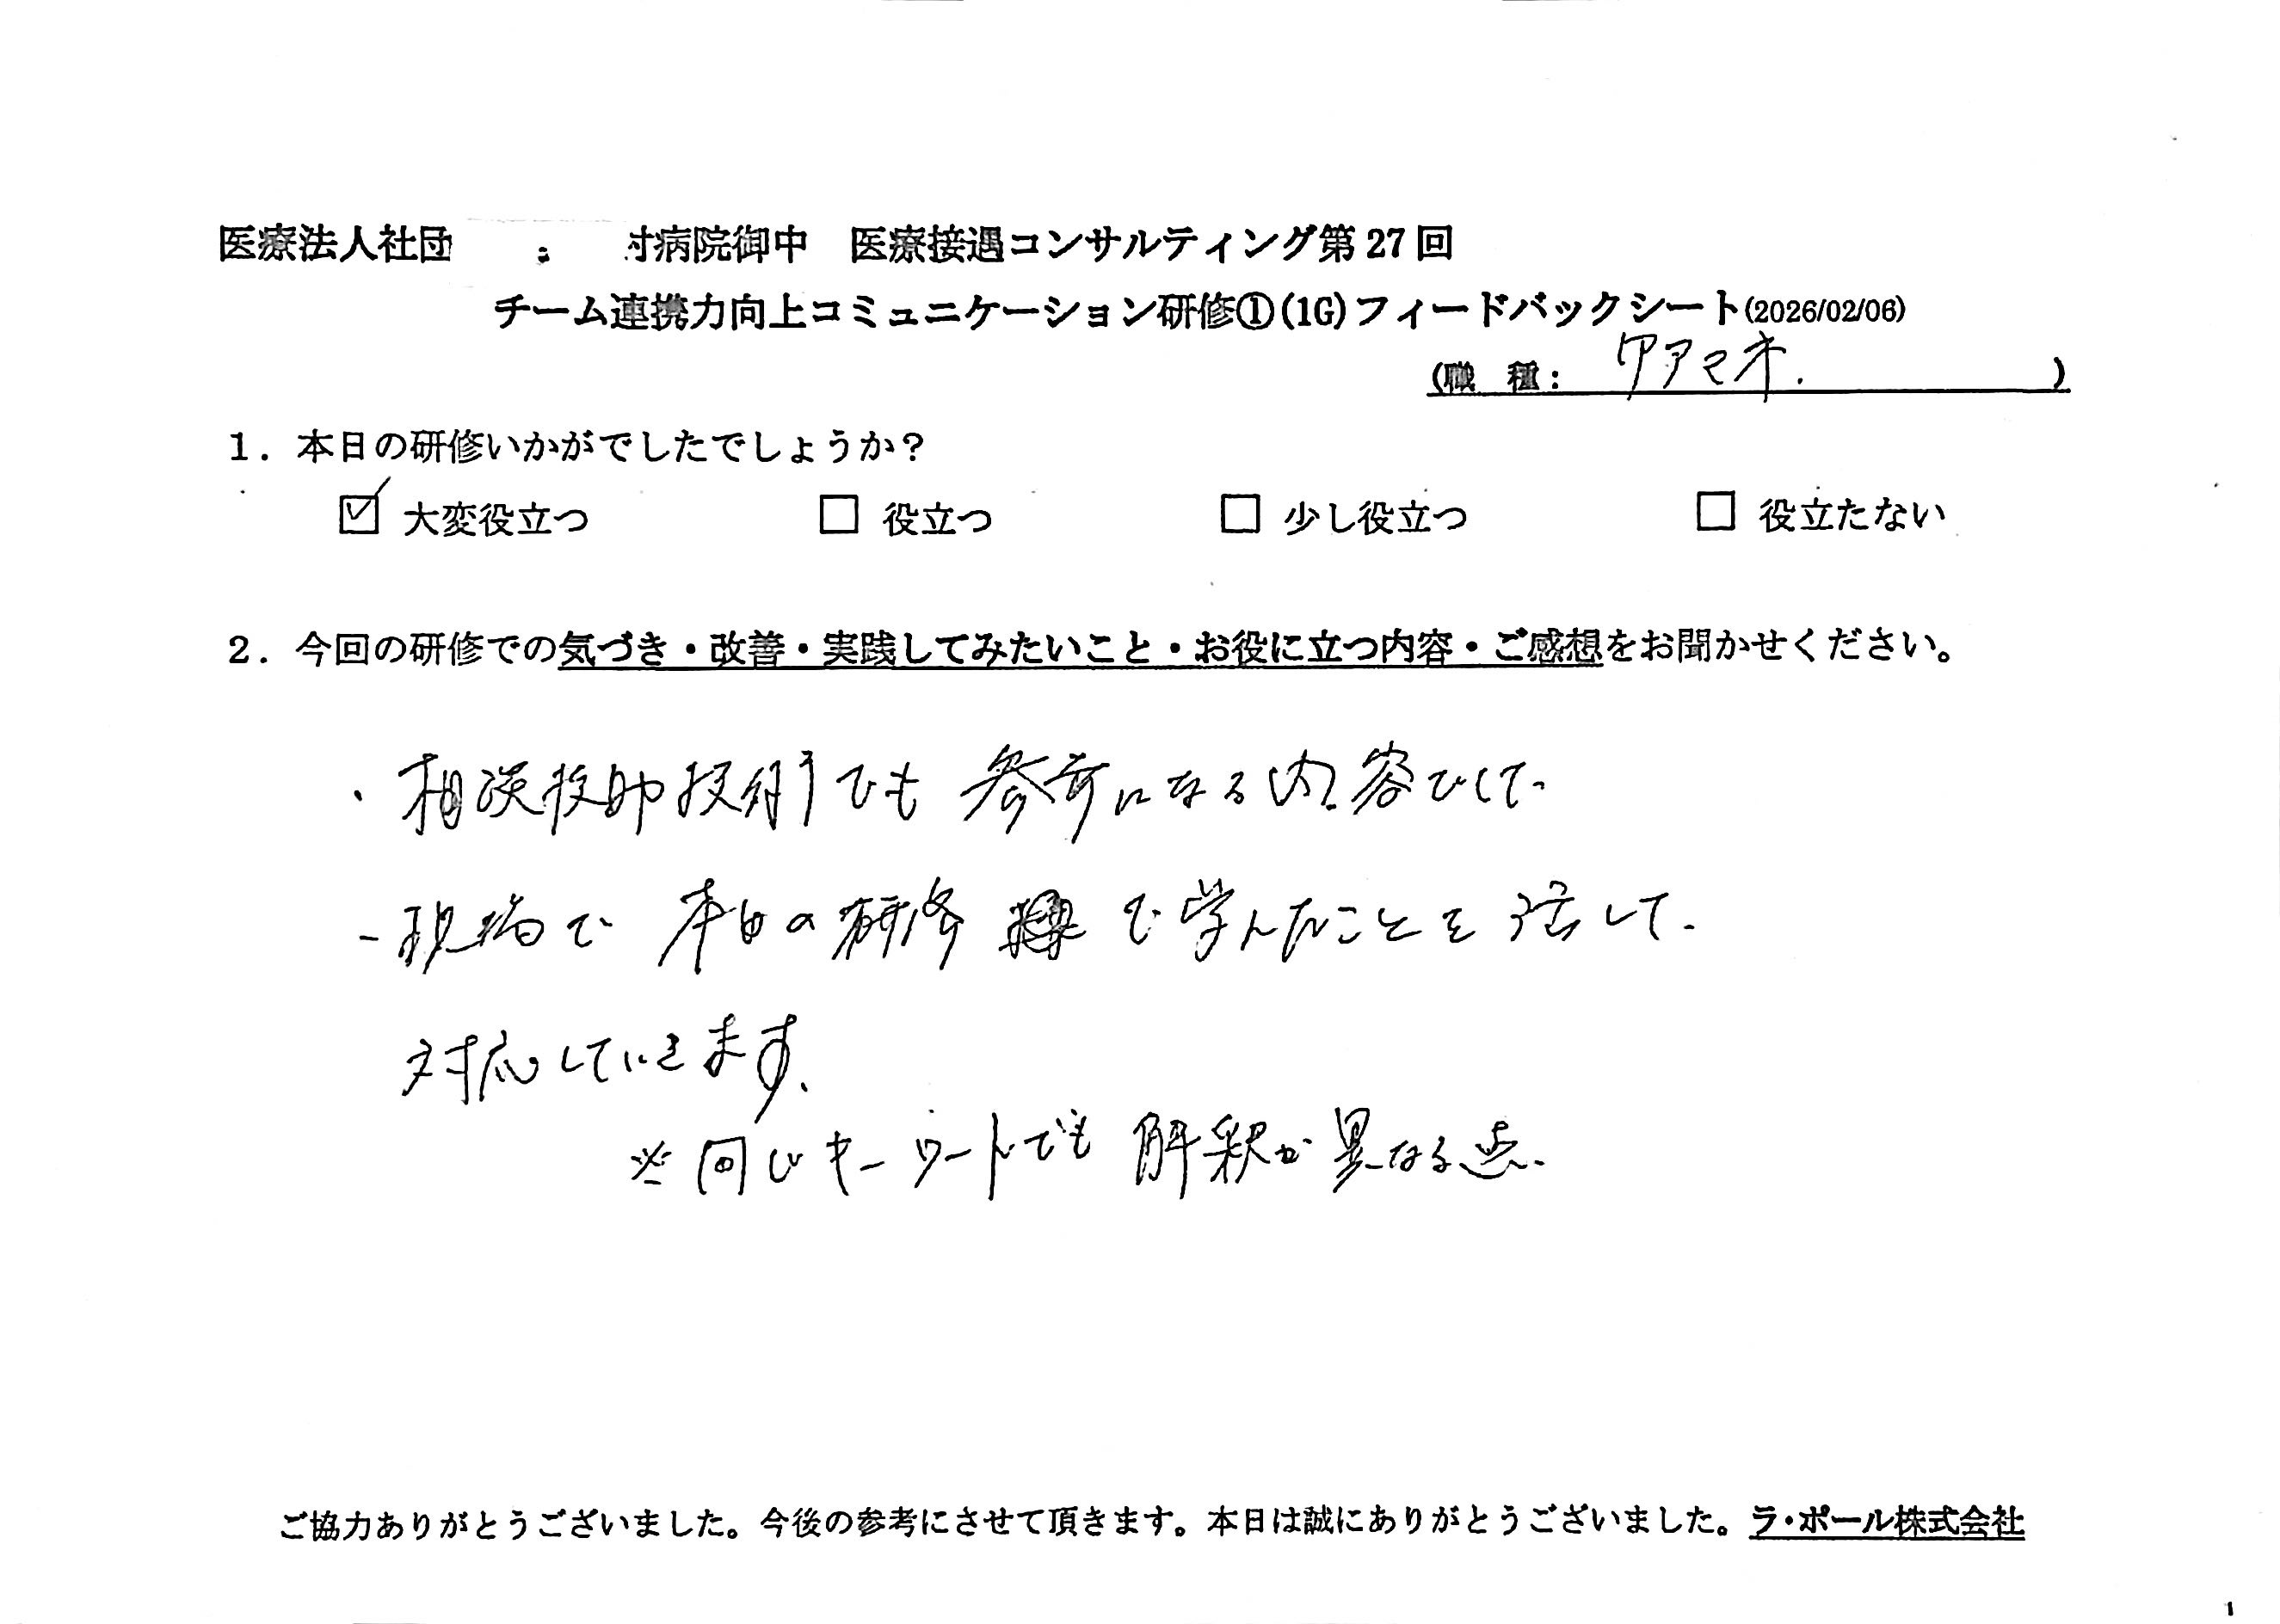 医療法人社団 病院御中 医療接遇コンサルティング第27回
チーム連携力向上コミュニケーション研修①(1G)フィードバックシート(2026/02/06)
(職 種: ケアマネ. )
1. 本日の研修いかがでしたでしょうか?
☑ 大変役立つ □ 役立つ □ 少し役立つ □ 役立たない
2. 今回の研修での気づき・改善・実践してみたいこと・お役に立つ内容・ご感想をお聞かせください。
・相談援助技術でも参考になる内容でした
-現場で本日の研修で学んだことを活して.
対応していきます.
※同じキーワードでも解釈が異なる点.
ご協力ありがとうございました。今後の参考にさせて頂きます。本日は誠にありがとうございました。ラ・ポール株式会社
1